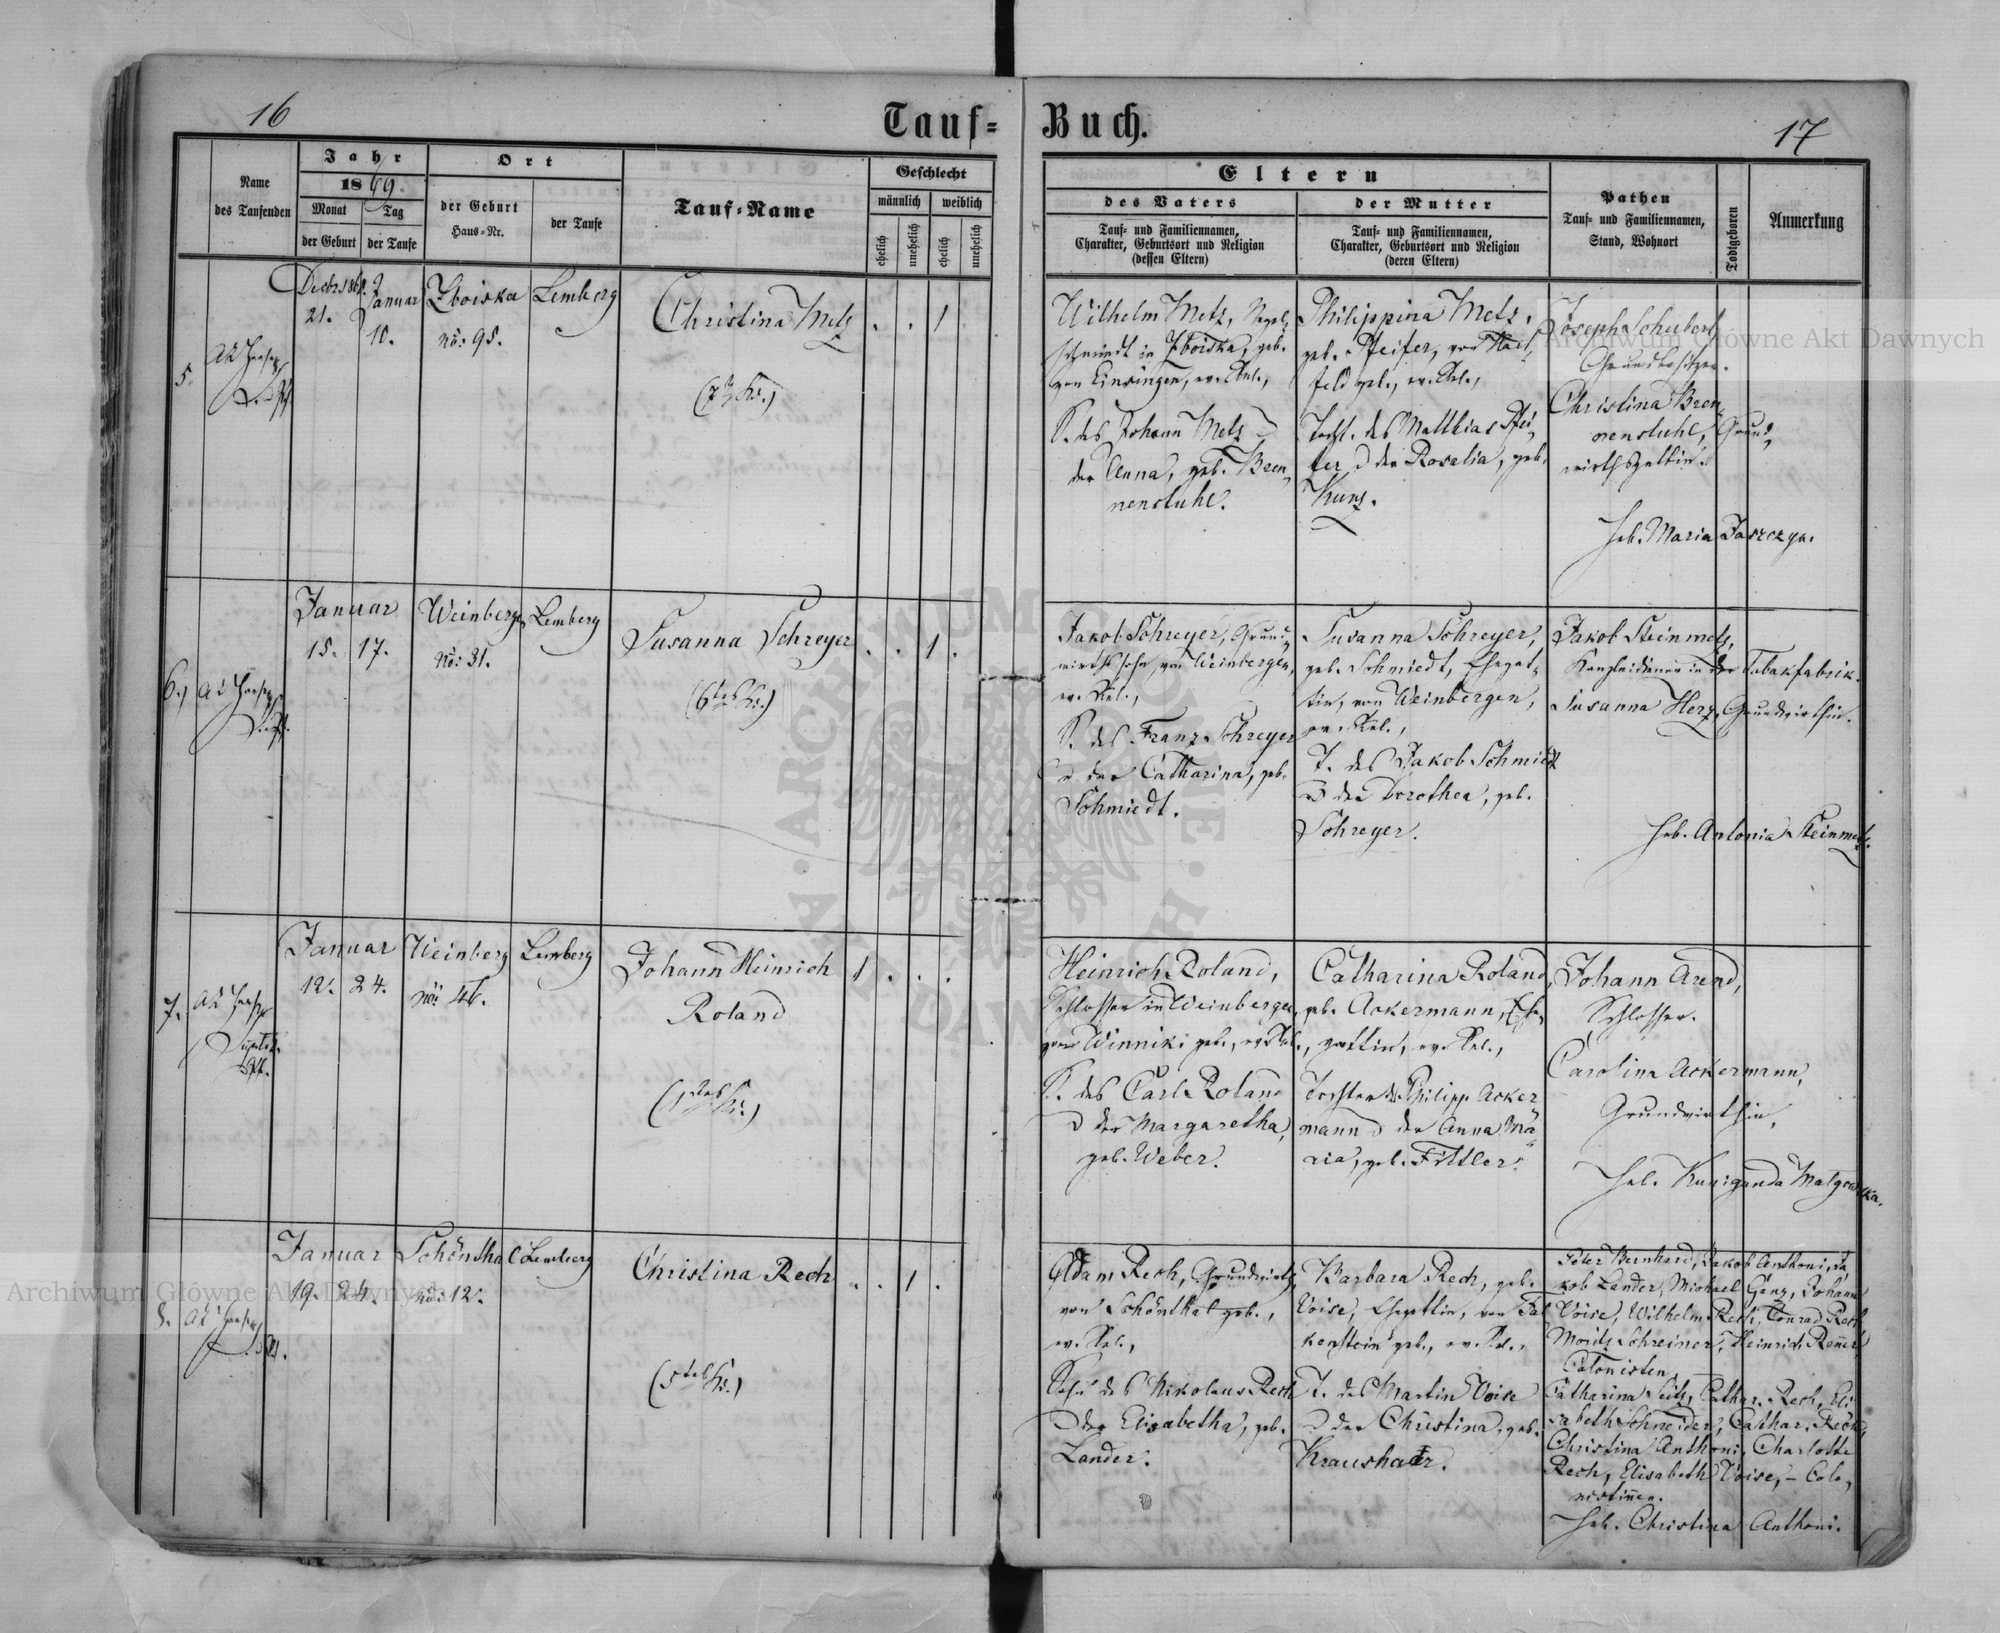 16
Tauf-Buch.
17
Name
des Taufenden
Jahr
1869.
Monat
der Geburt
Tag
der Taufe
Ort
der Geburt
Haus-Nr.
der Taufe
Tauf-Name
Geschlecht
männlich
weiblich
ehelich
unehelich
ehelich
unehelich
Eltern
des Vaters
Tauf- und Familiennamen,
Charakter, Geburtsort und Religion
(dessen Eltern)
der Mutter
Tauf- und Familiennamen,
Charakter, Geburtsort und Religion
(deren Eltern)
Pathen
Tauf- und Familiennamen,
Stand, Wohnort
Todtgeboren
Anmerkung
5.
21.
Januar
10.
Zboiska
No: 95.
Lemberg
Christina Metz
. . 1
Wilhelm Metz, Nagel-
schmiedt in Zboiska, geb.
von Einsingen, ev. Rel.,
S. des Johann Metz
der Anna, geb. Bren-
nenstuhl.
Philippina Metz,
geb. Pfeifer, von
feld geb., ev. Rel.,
Tocht. des Matthias Pfei-
fer d der Rosalia, geb.
Kunz.
Joseph Schubert
Grundbesitzer.
Christina Bren-
nenstuhl, Grund-
wirthsgattin.
Heb. Maria Jaszczya.
6.)
Januar
15. 17.
Weinbergen
No: 31.
Lemberg
Susanna Schreyer
. . 1 .
Jakob Schreyer, Grund-
wirthssohn, von Weinbergen,
ev. Rel.,
S. des Franz Schreyer
d der Catharina, geb.
Schmiedt.
Susanna Schreyer,
geb. Schmiedt, Ehegat-
tin, von Weinbergen,
ev. Rel.,
T. des Jakob Schmiedt
d der Dorothea, geb.
Schreyer.
Jakob Steinmetz,
Kanzleidiener in der Tabakfabrik.
Susanna Herz, Grundwirthin.
Heb. Antonia Steinmetz.
7.
Januar
12. 24.
Weinberg
No: 46.
Lemberg
Johann Heinrich
Roland
1 . . .
Heinrich Roland,
Schlosser in Weinbergen,
von Winniki geb., ev. Rel.,
S. des Carl Roland
d der Margaretha,
geb. Weber.
Catharina Roland,
geb. Ackermann, Ehe-
gattin, ev. Rel.,
Tochter des Philipp Acker
mann d der Anna Ma-
ria, geb. Fittler.
Johann Arend,
Schlosser.
Carolina Ackermann,
Grundwirthin,
Heb. Kunigunda
8.
Januar
19. 24.
Schönthal
No: 12.
Lemberg
Christina Rech
. . 1 .
Adam Rech, Grundwirth,
von Schönthal geb.,
ev. Rel.,
Sohn des Nikolaus Rech
d der Elisabetha, geb.
Lander.
Barbara Rech, geb.
Voise, Ehegattin, von Fal
kenstein geb., ev. Rel.,
T. des Martin Voise
d der Christina, geb.
Kraushaar.
Peter Bernhard, Jakob Anthoni, Ja
kob Lander, Michael Ganz, Johann
Voise, Wilhelm Rech, Conrad Rech
Moritz Schreiner, Heinrich Renner
Colonisten
Catharina Seitz, Cathar. Rech, Eli-
sabeth Schneider, Cathar. Rech,
Christina Anthoni, Charlotte
Rech, Elisabeth Voise, – Colo-
nistinen.
Heb. Christina Anthoni.
Archiwum Główne Akt Dawnych
Archiwum Główne Akt Dawnych
ARCHIWUM GŁÓWNE AKT DAWNYCH